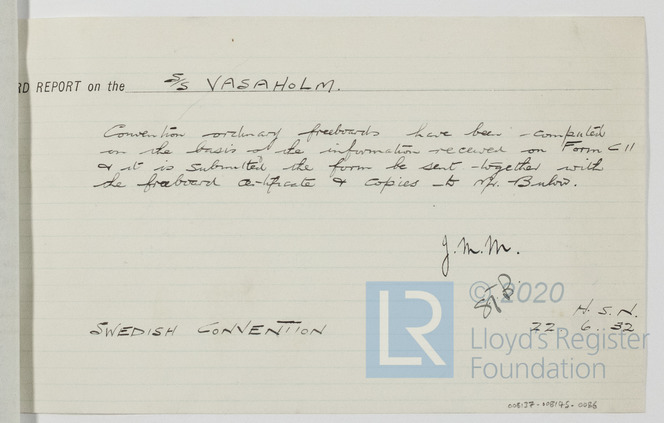 RD REPORT on the S/S VASAHOLM.
Convention ordinary freeboards have been computed
on the basis of the information received on Form C11
& it is submitted the form be sent together with
the freeboard certificate & copies to Mr. Bulow.
J.M.M.
© 2020
H.S.N.
SWEDISH CONVENTION 22.6.32
LR
Lloyd's Register
Foundation
008137-008145-0086